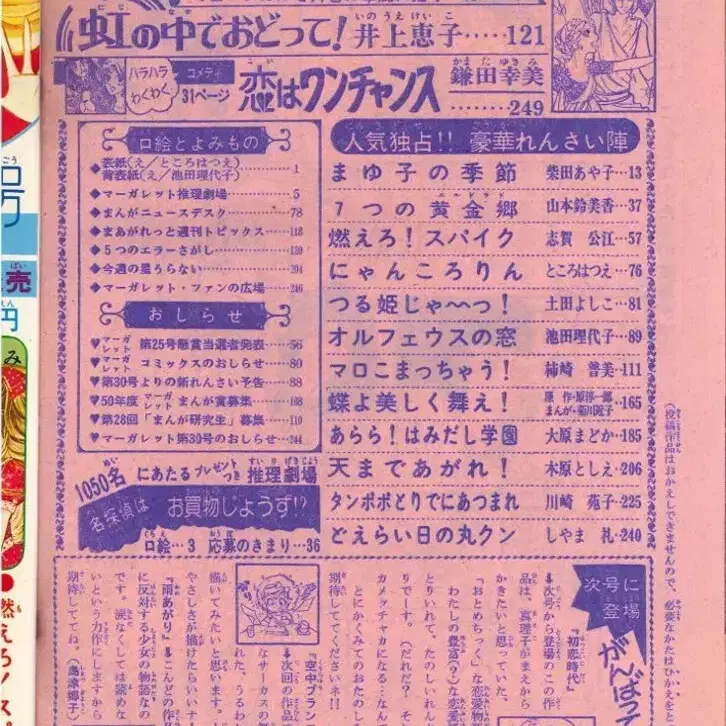 虹の中でおどって！ 井上恵子……121
ハラハラ
わくわく
コメディ
31ページ
恋はワンチャンス 鎌田幸美……249
口絵とよみもの
◆表紙(え／ところはつえ)
背表紙(え／池田理代子) 1
◆マーガレット推理劇場……5
◆まんがニュースデスク……78
◆まあがれっと週刊トピックス……118
◆5つのエラーさがし……120
◆今週の星うらない……204
◆マーガレット・ファンの広場……246
おしらせ
♥マーガレット 第25号懸賞当選者発表……56
♥マーガレット コミックスのおしらせ……80
♥第30号よりの新れんさい予告……88
♥50年度マーガレットまんが賞募集……108
♥第28回「まんが研究生」募集……110
♥マーガレット第30号のおしらせ……244
1050名にあたるプレゼントつき推理劇場
名探偵はお買物じょうず!?
口絵…3 応募のきまり…36
人気独占!! 豪華れんさい陣
まゆ子の季節 柴田あや子…13
7つの黄金郷 山本鈴美香…37
燃えろ！スパイク 志賀公江…57
にゃんころりん ところはつえ…76
つる姫じゃ〜っ！ 土田よしこ…81
オルフェウスの窓 池田理代子…89
マロこまっちゃう！ 柿崎普美…111
蝶よ美しく舞え！ 原作・原淳一郎 まんが・菊川近子…165
あらら！はみだし学園 大原まどか…185
天まであがれ！ 木原としえ…206
タンポポとりでにあつまれ 川崎苑子…225
どえらい日の丸クン しやま礼…240
(投稿作品はおかえしできませんので、必要なかたはひかえをと
次号に
登場
がんばっ
『初恋時代』
↓次号から登場のこの作
品は、真理子がまえから
かきたいと思っていた、
「おとめちっく」な恋愛物
わたしの豊富(？)な恋愛
とりいれて、たのしいれん
りです。（だれだ？ そ
カメッチャカになる…なん
とにかくみてのおたのし
期待しててくださいネ!!
『空中ブラン
↓次回の作品
なサーカスの
れた、うるわ
描いてみたいと思います。
やさしさが描けたらいいナ
『雨あがり』↓こんどの作
に反対する少女の物語なの
です。涙なくしては読めな
いという力作にしますから
期待しててね。(島津郷子)
号
売
円
み
●燃えろ！スパ